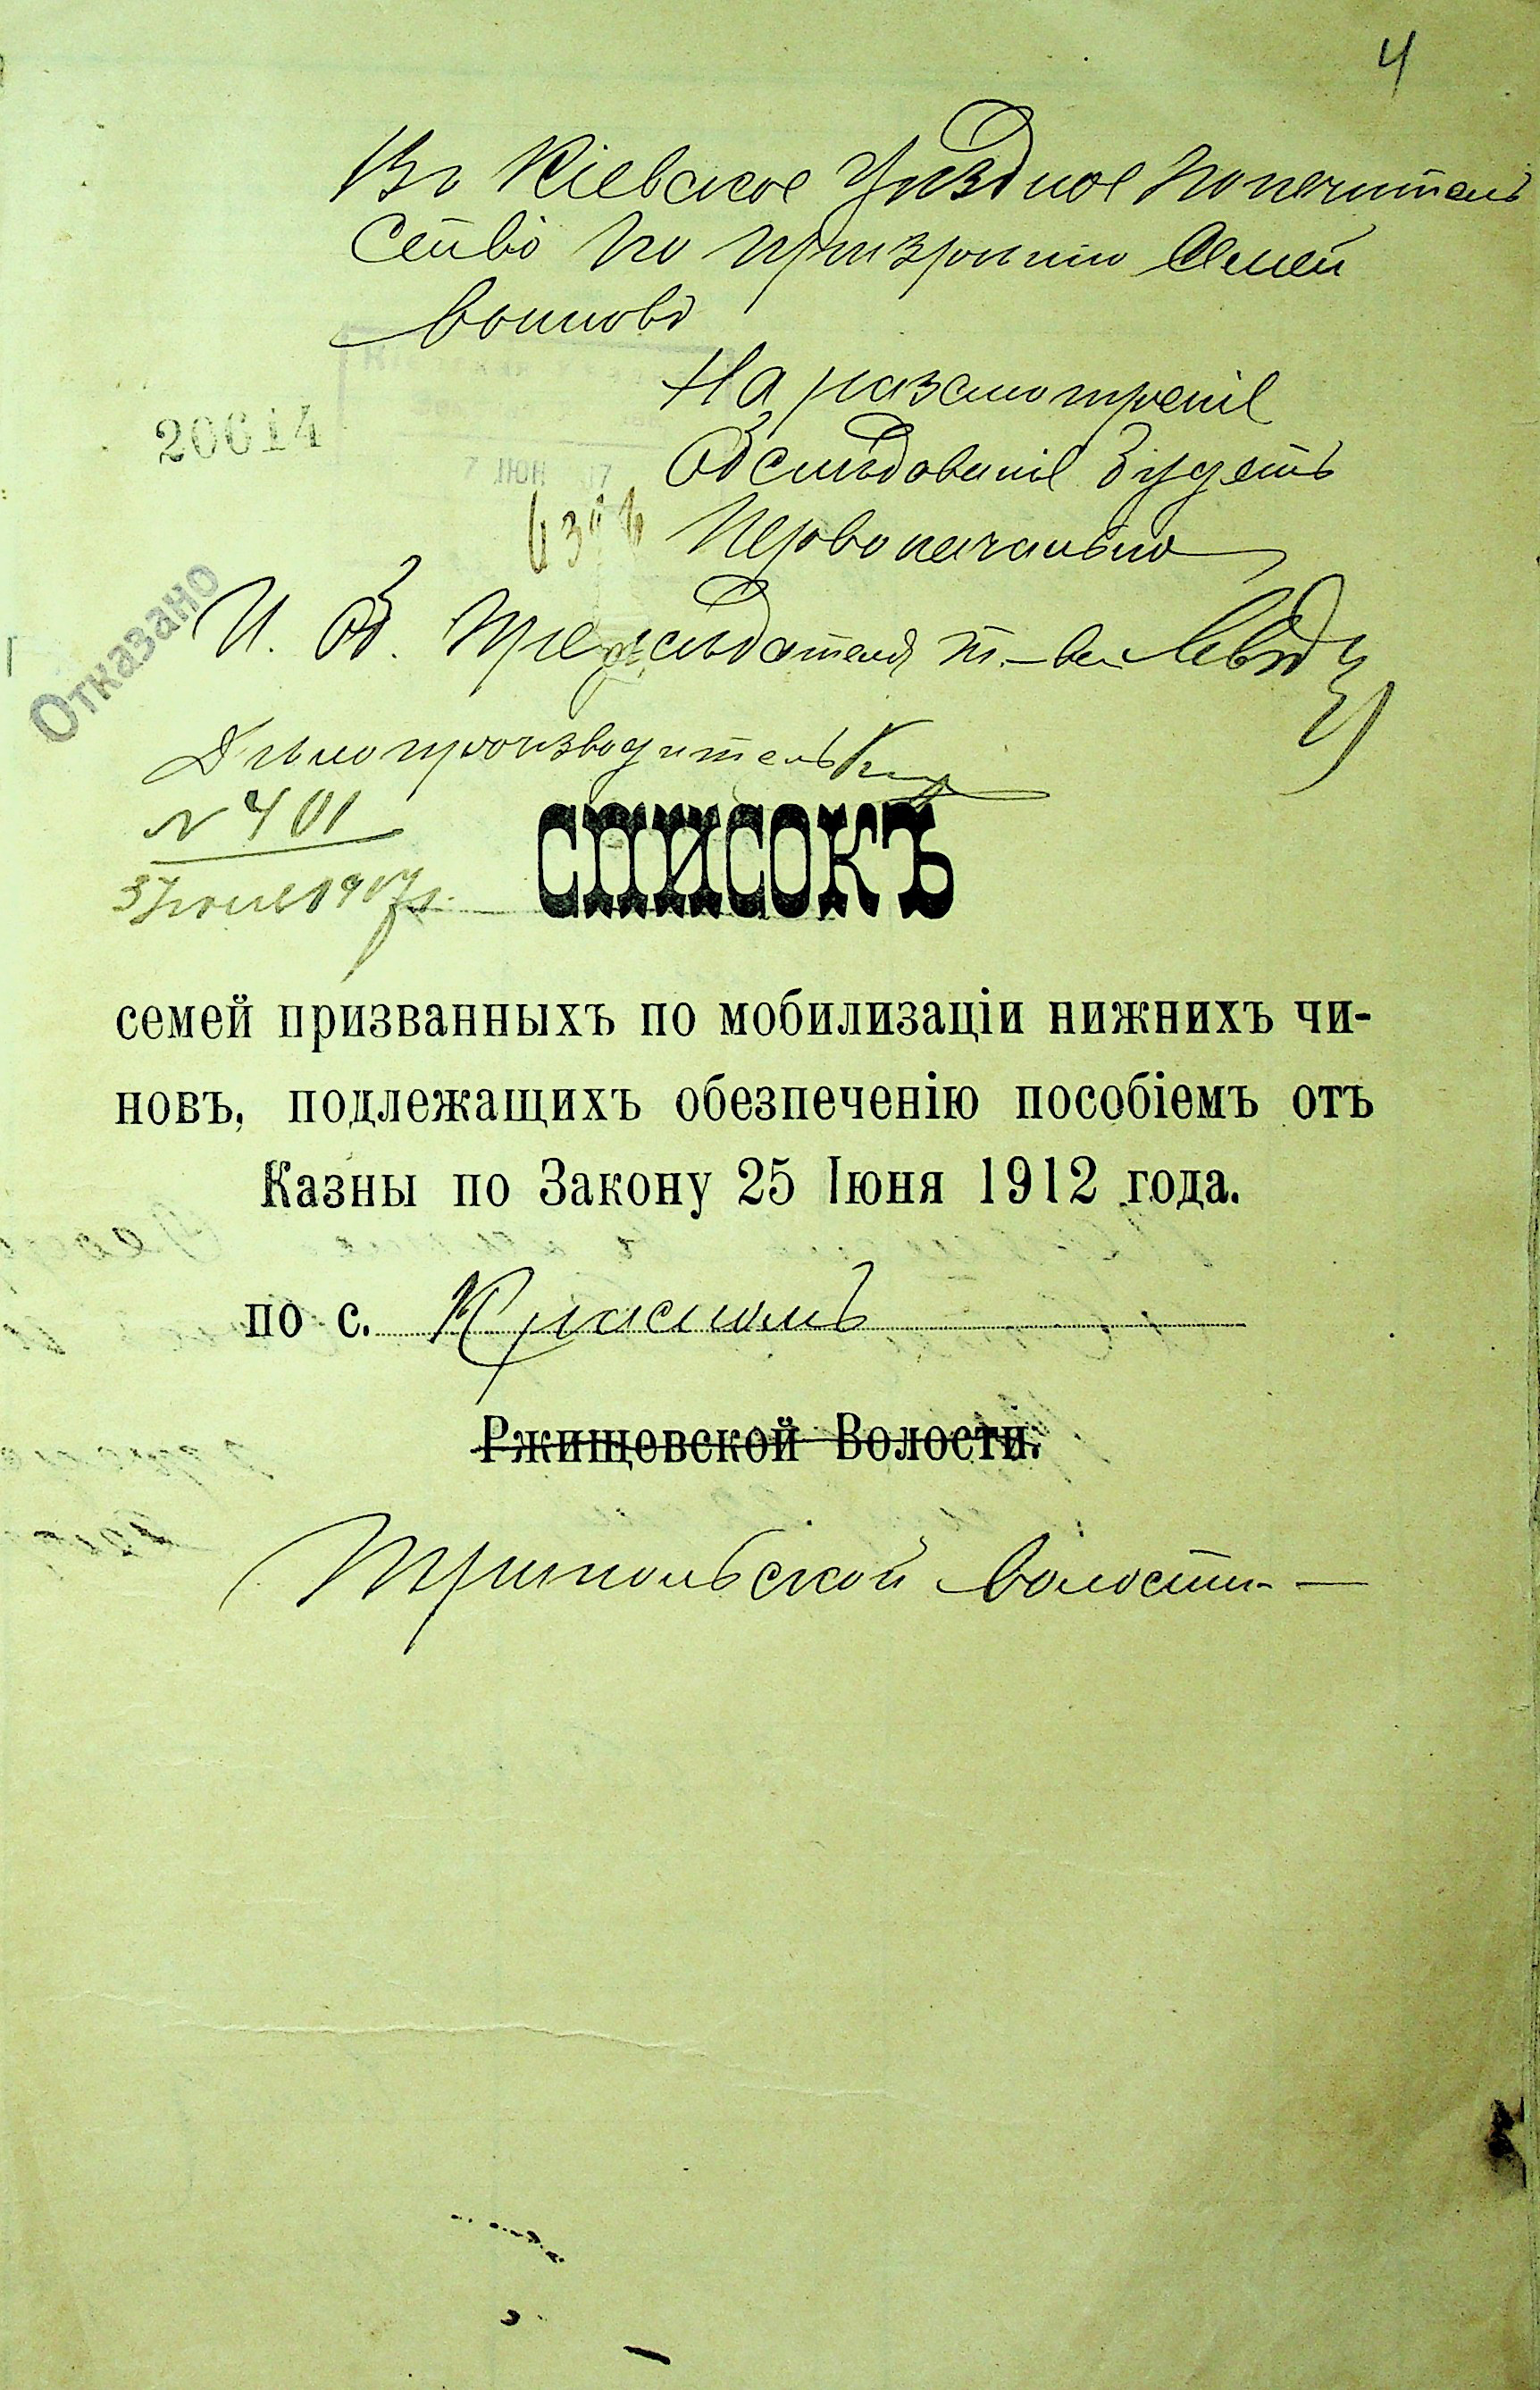 4
Въ Кіевское Уѣздное Попечитель
ство по призрѣнію Семей
воиновъ
На разсмотреніе
20614
7 ІЮН 17
Обслѣдованіе будетъ
Первоначально
Отказано
И. Об. Предсѣдателя
Дѣлопроизводитель
N 401
3 Іюня 1917 г.
СПИСОКЪ
семей призванныхъ по мобилизаціи нижнихъ чи-
новъ, подлежащихъ обезпеченію пособіемъ отъ
Казны по Закону 25 Іюня 1912 года.
по с. Красномъ
Ржищевской Волости.
Трипольской волости